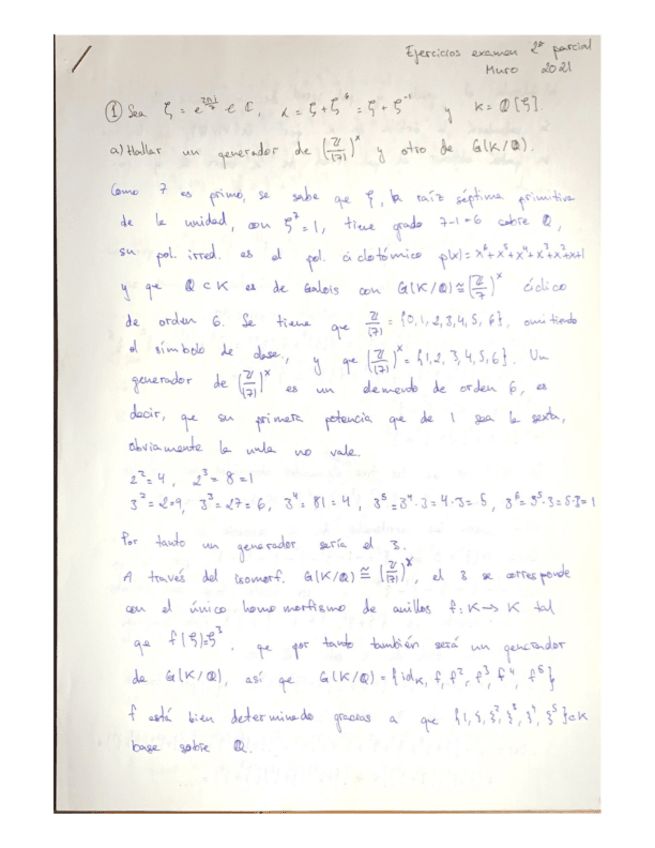 Ejercicios examen 2º parcial
Muro 2021
① Sea ζ = e^(2πi/7) ∈ ℂ, α = ζ + ζ^6 = ζ + ζ^-1 y K = ℚ[ζ].
a) Hallar un generador de (ℤ/(7))^x y otro de G(K/ℚ).
Como 7 es primo, se sabe que ζ, la raíz séptima primitiva
de la unidad, con ζ^7 = 1, tiene grado 7-1=6 sobre ℚ,
su pol. irred. es el pol. ciclotómico p(x) = x^6+x^5+x^4+x^3+x^2+x+1
y que ℚ ⊂ K es de Galois con G(K/ℚ) ≅ (ℤ/7)^x cíclico
de orden 6. Se tiene que ℤ/(7) = {0,1,2,3,4,5,6}, omitiendo
el símbolo de clase, y que (ℤ/(7))^x = {1,2,3,4,5,6}. Un
generador de (ℤ/(7))^x es un elemento de orden 6, es
decir, que su primera potencia que de 1 sea la sexta,
obviamente la nula no vale.
2^2=4, 2^3=8=1
3^3=27=6, 3^4=81=4, 3^5=3^4·3=4·3=5, 3^6=3^5·3=5·3=1
Por tanto un generador sería el 3.
A través del isomorf. G(K/ℚ) ≅ (ℤ/(7))^x, el 3 se corresponde
con el único homomorfismo de anillos f: K → K tal
que f(ζ)=ζ^3, que por tanto también será un generador
de G(K/ℚ), así que G(K/ℚ) = {id_K, f, f^2, f^3, f^4, f^5}
f está bien determinado gracias a que {1, ζ, ζ^2, ζ^3, ζ^4, ζ^5} ⊂ K
base sobre ℚ.